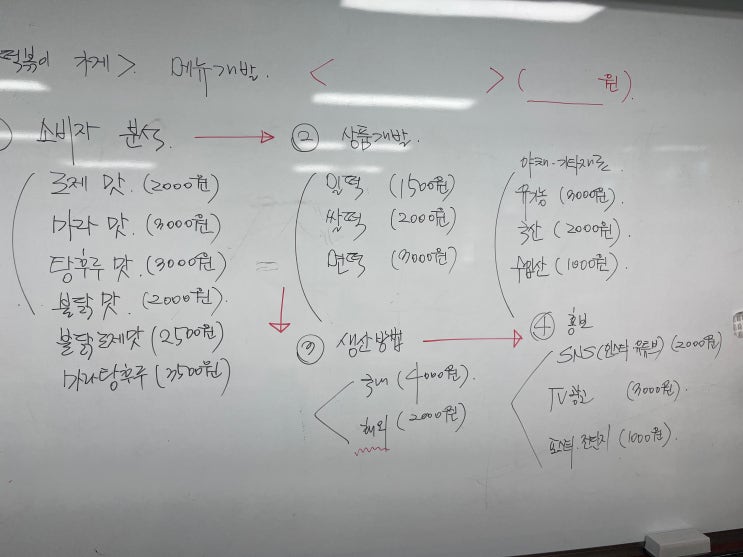 떡볶이 가게> 메뉴개발. < > ( 원).
소비자 분석. → ② 상품개발.
로제 맛. (2000원)
마라 맛. (3000원)
탕후루 맛. (3000원)
불닭 맛. (2000원).
불닭로제맛 (2500원)
마라탕후루 (3500원)
밀떡 (1500원)
쌀떡 (2000원)
면떡 (3000원)
야채·기타재료.
유기농 (3000원)
국산 (2000원)
수입산 (1000원)
③ 생산방법 → ④ 홍보
국내 (4000원).
해외 (2000원)
SNS(인스타·유튜브) (2000원)
TV광고 (3000원).
포스터·전단지 (1000원).